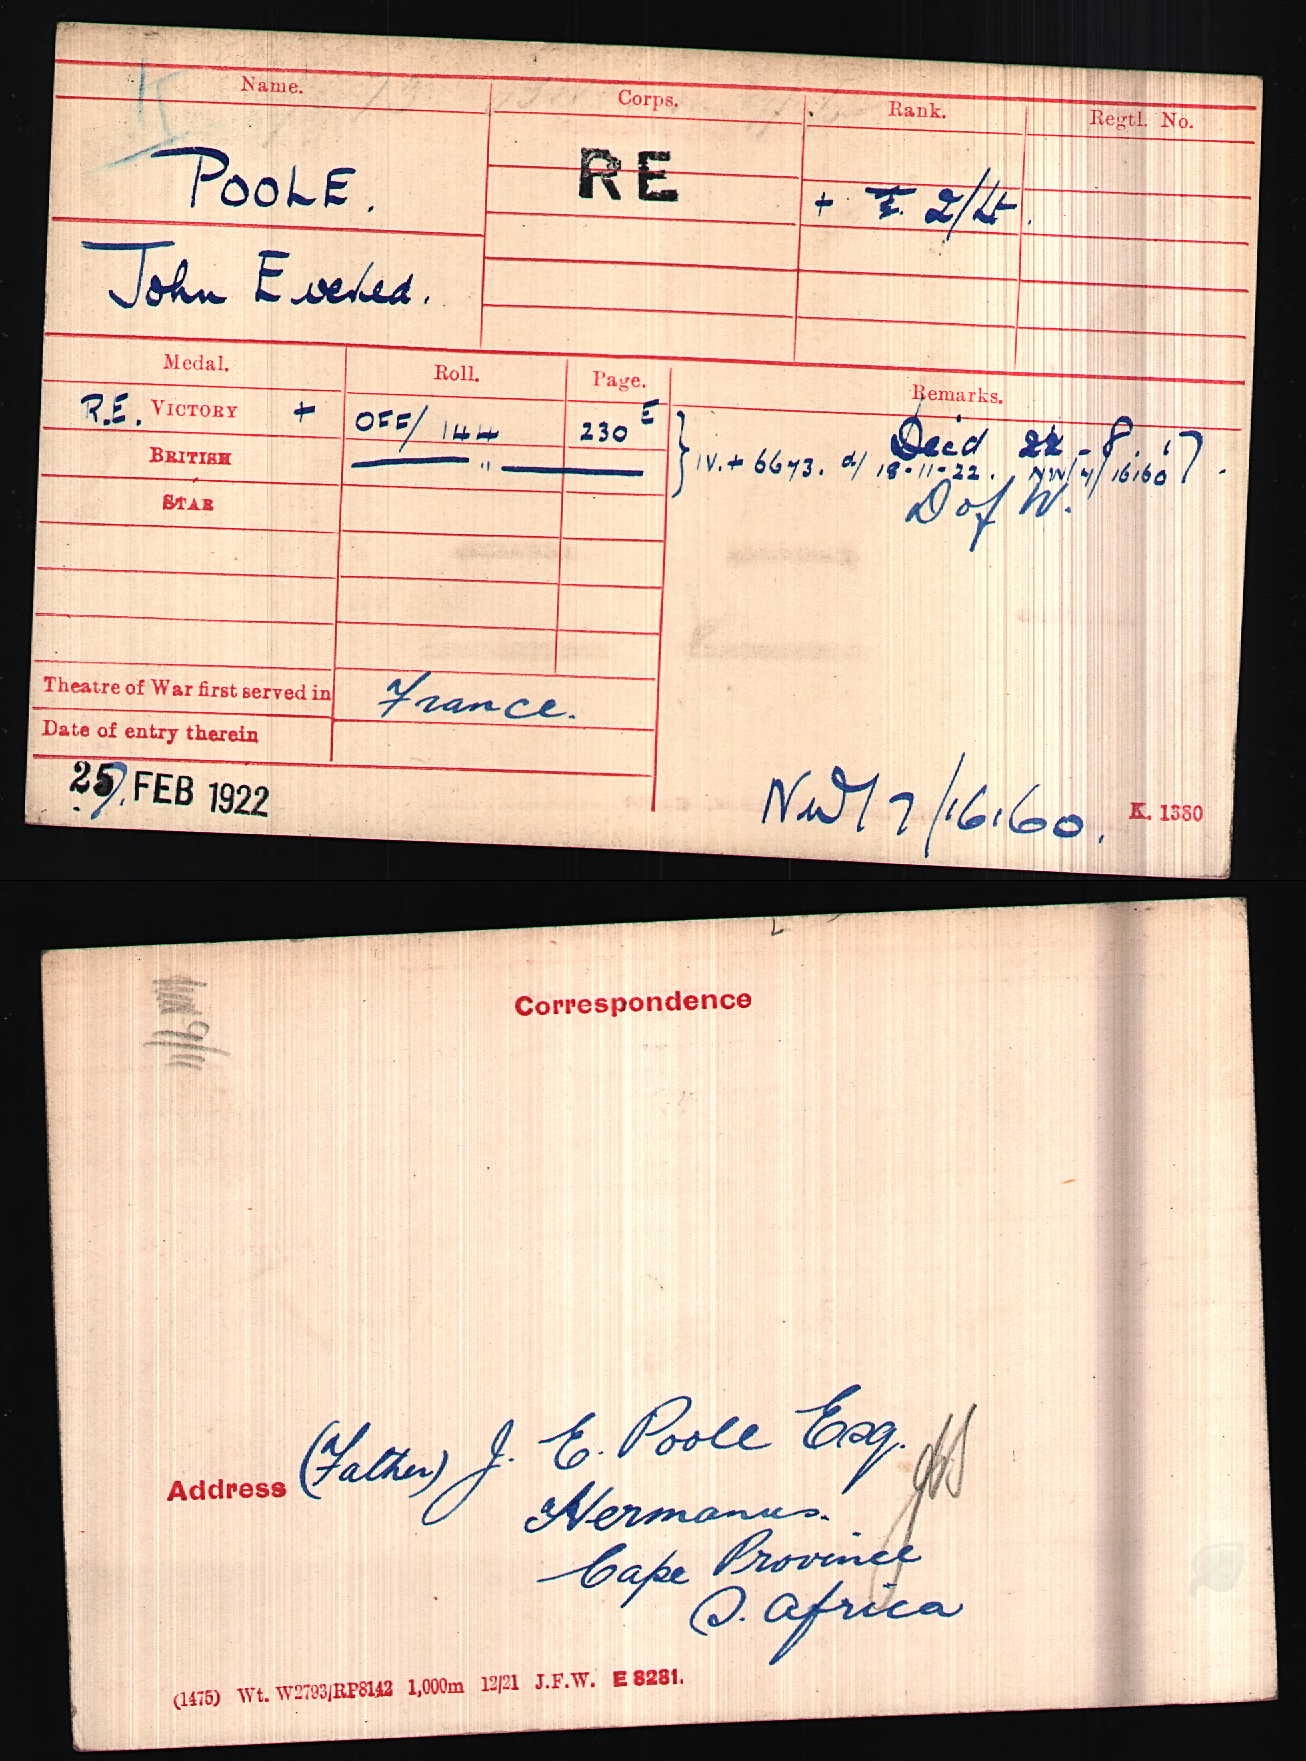 Name.
Corps.
Rank.
Regtl. No.
POOLE.
RE
+ T. 2/Lt.
John Evered.
Medal.
Roll.
Page.
Remarks.
R.E. VICTORY +
OFF/144
230 E
Died 22-8-17
BRITISH
"
IV.+ 6643. d/ 18-11-22. NW/7/16160
STAR
D of W.
Theatre of War first served in
France.
Date of entry therein
25 FEB 1922
NW/7/16160.
K. 1380
Correspondence
Address (Father) J. E. Poole Esq.
Hermanus.
Cape Province
S. Africa
(1475) Wt. W2793/RP8142 1,000m 12/21 J.F.W. E 8281.